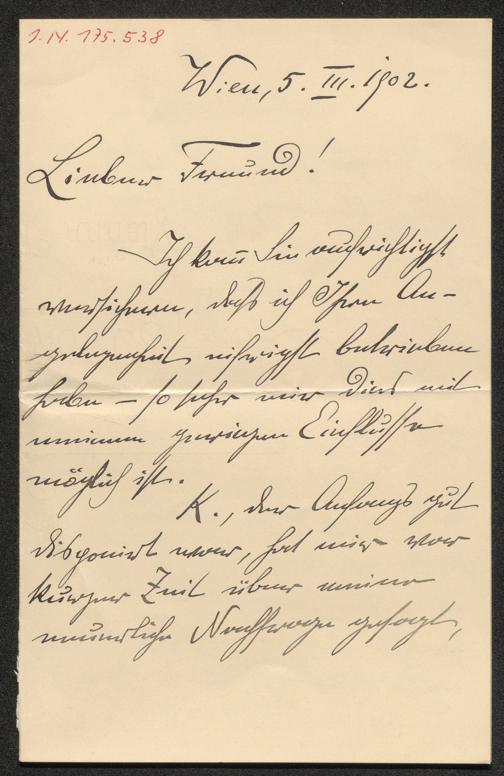 I.N. 175.538
Wien, 5. III. 1902.
Lieber Freund!
Ich kann Sie aufrichtigst
versichern, daß ich Ihre An-
gelegenheit eifrigst betrieben
habe – so sehr mir dies mit
meinem geringen Einflusse
möglich ist.
K., der Anfangs gut
disponirt war, hat mir vor
kurzer Zeit über meine
neuerliche Nachfrage gesagt,